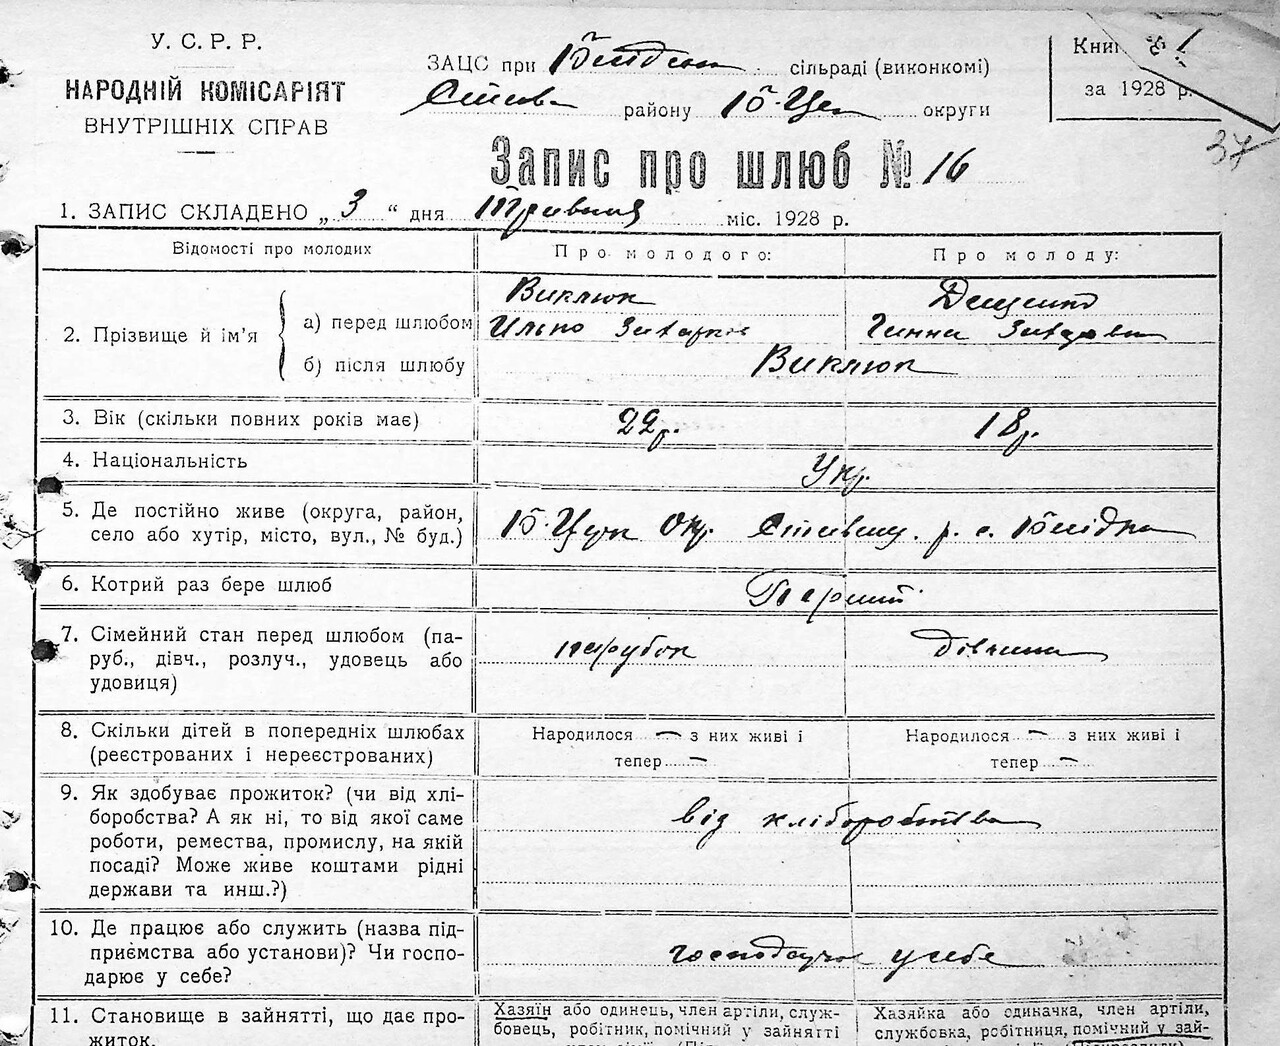 У. С. Р. Р.
НАРОДНІЙ КОМІСАРІЯТ
ВНУТРІШНІХ СПРАВ
ЗАЦС при сільраді (виконкомі)
району Б-Це округи
Книг № 1
за 1928 р.
37
Запис про шлюб № 16
1. ЗАПИС СКЛАДЕНО „ 3 “ дня Травня міс. 1928 р.
Відомості про молодих
Про молодого:
Про молоду:
2. Прізвище й ім’я
а) перед шлюбом
б) після шлюбу
Виклюк
Ілько Захарков
Деценко
Ганна Захаров
Виклюк
3. Вік (скільки повних років має)
22 р.
18 р.
4. Національність
Укр.
5. Де постійно живе (округа, район,
село або хутір, місто, вул., № буд.)
Б-Церк Окр. р. с.
6. Котрий раз бере шлюб
Перший
7. Сімейний стан перед шлюбом (па-
руб., дівч., розлуч., удовець або
удовиця)
парубок
дівчина
8. Скільки дітей в попередніх шлюбах
(реєстрованих і нереєстрованих)
Народилося — з них живі і
тепер —
Народилося — з них живі і
тепер —
9. Як здобуває прожиток? (чи від хлі-
боробства? А як ні, то від якої саме
роботи, ремества, промислу, на якій
посаді? Може живе коштами рідні
держави та инш.?)
від хліборобства
10. Де працює або служить (назва під-
приємства або установи)? Чи госпо-
дарює у себе?
господарює у себе
11. Становище в зайнятті, що дає про-
житок.
Хазяїн або одинець, член артілі, служ-
бовець, робітник, помічний у зайнятті
Хазяйка або одиначка, член артілі,
службовка, робітниця, помічний у зай-